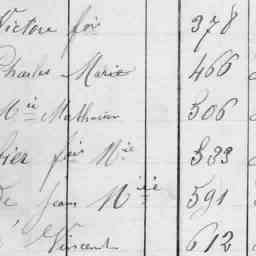 Victore fois 378
Charles Marie 466
Mie Mathurin 506
fois Mie 533
De Jean Mie 591
Vincent 612